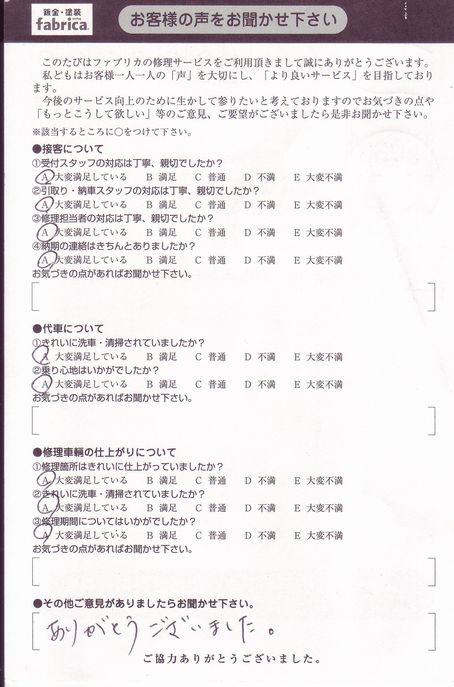 鈑金・塗装
fabrica.
お客様の声をお聞かせ下さい
このたびはファブリカの修理サービスをご利用頂きまして誠にありがとうございます。
私どもはお客様一人一人の「声」を大切にし、「より良いサービス」を目指しており
ます。
今後のサービス向上のために生かして参りたいと考えておりますのでお気づきの点や
「もっとこうして欲しい」等のご意見、ご要望がございましたら是非お聞かせ下さい。
※該当するところに○をつけて下さい。
●接客について
①受付スタッフの対応は丁寧、親切でしたか?
A 大変満足している B 満足 C 普通 D 不満 E 大変不満
②引取り・納車スタッフの対応は丁寧、親切でしたか?
A 大変満足している B 満足 C 普通 D 不満 E 大変不満
③修理担当者の対応は丁寧、親切でしたか?
A 大変満足している B 満足 C 普通 D 不満 E 大変不満
④納期の連絡はきちんとありましたか?
A 大変満足している B 満足 C 普通 D 不満 E 大変不満
お気づきの点があればお聞かせ下さい。
●代車について
①きれいに洗車・清掃されていましたか?
A 大変満足している B 満足 C 普通 D 不満 E 大変不満
②乗り心地はいかがでしたか?
A 大変満足している B 満足 C 普通 D 不満 E 大変不満
お気づきの点があればお聞かせ下さい。
●修理車輛の仕上がりについて
①修理箇所はきれいに仕上がっていましたか?
A 大変満足している B 満足 C 普通 D 不満 E 大変不満
②きれいに洗車・清掃されていましたか?
A 大変満足している B 満足 C 普通 D 不満 E 大変不満
③修理期間についてはいかがでしたか?
A 大変満足している B 満足 C 普通 D 不満 E 大変不満
お気づきの点があればお聞かせ下さい。
●その他ご意見がありましたらお聞かせ下さい。
ありがとうございました。
ご協力ありがとうございました。